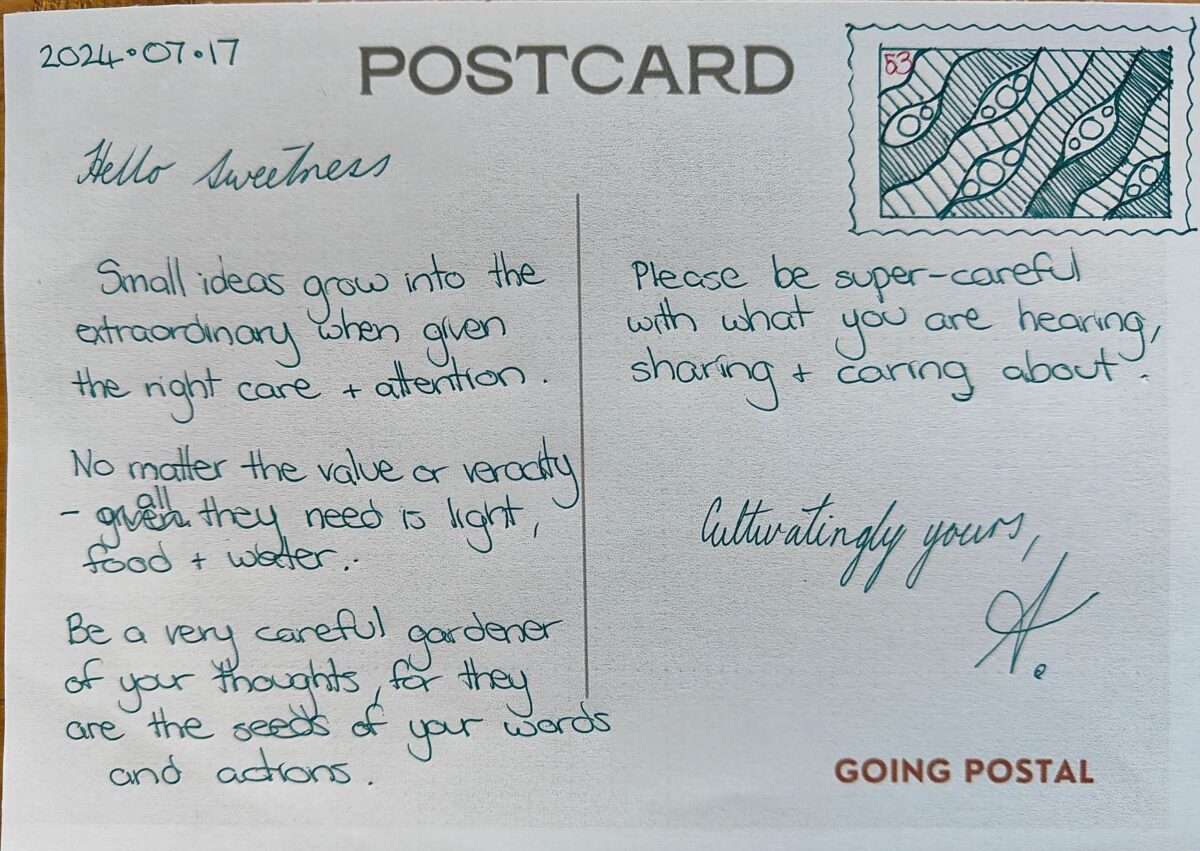 2024.07.17
POSTCARD
53
Hello Sweetness
Small ideas grow into the
extraordinary when given
the right care + attention.
No matter the value or veracity
all
- given they need is light,
food + water..
Be a very careful gardener
of your thoughts, for they
are the seeds of your words
and actions.
Please be super-careful
with what you are hearing,
sharing + caring about.
Cultivatingly yours,
A.
GOING POSTAL